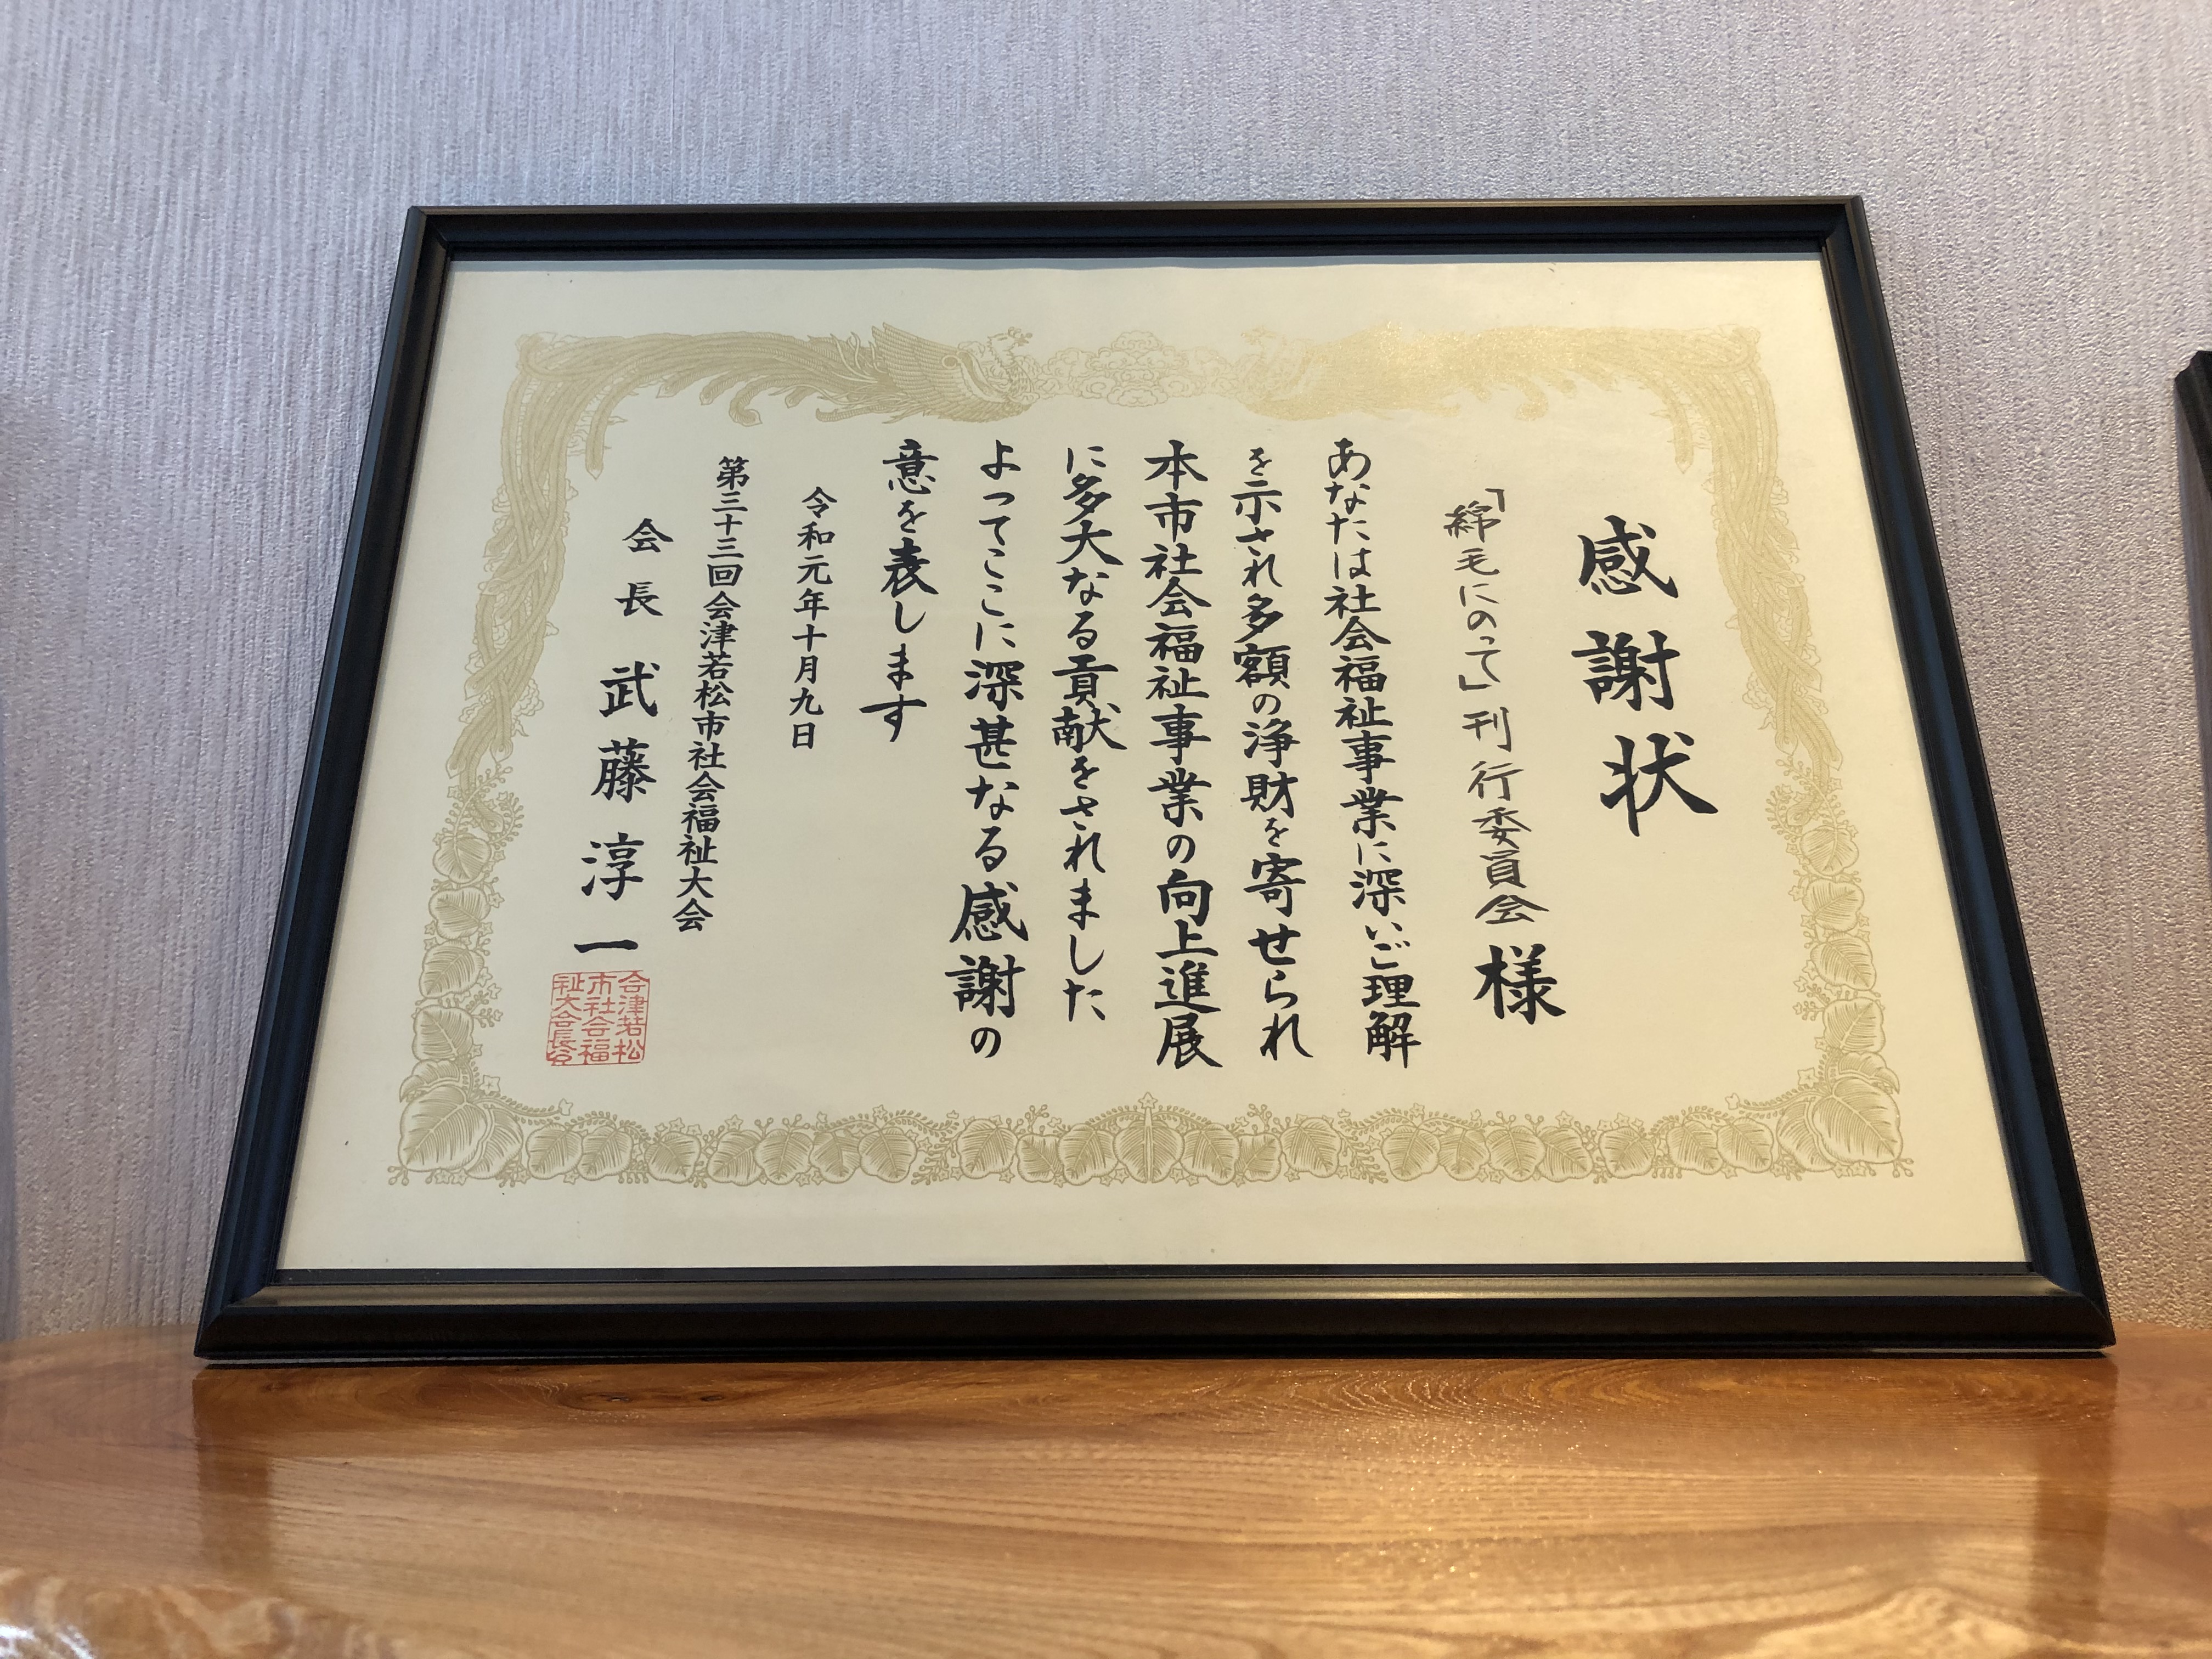 感謝状
「綿毛にのって」刊行委員会 様
あなたは社会福祉事業に深いご理解
を示され多額の浄財を寄せられ
本市社会福祉事業の向上進展
に多大なる貢献をされました
よってここに深甚なる感謝の
意を表します
令和元年十月九日
第三十三回会津若松市社会福祉大会
会長 武藤淳一
会津若松
市社会福
祉大会長印